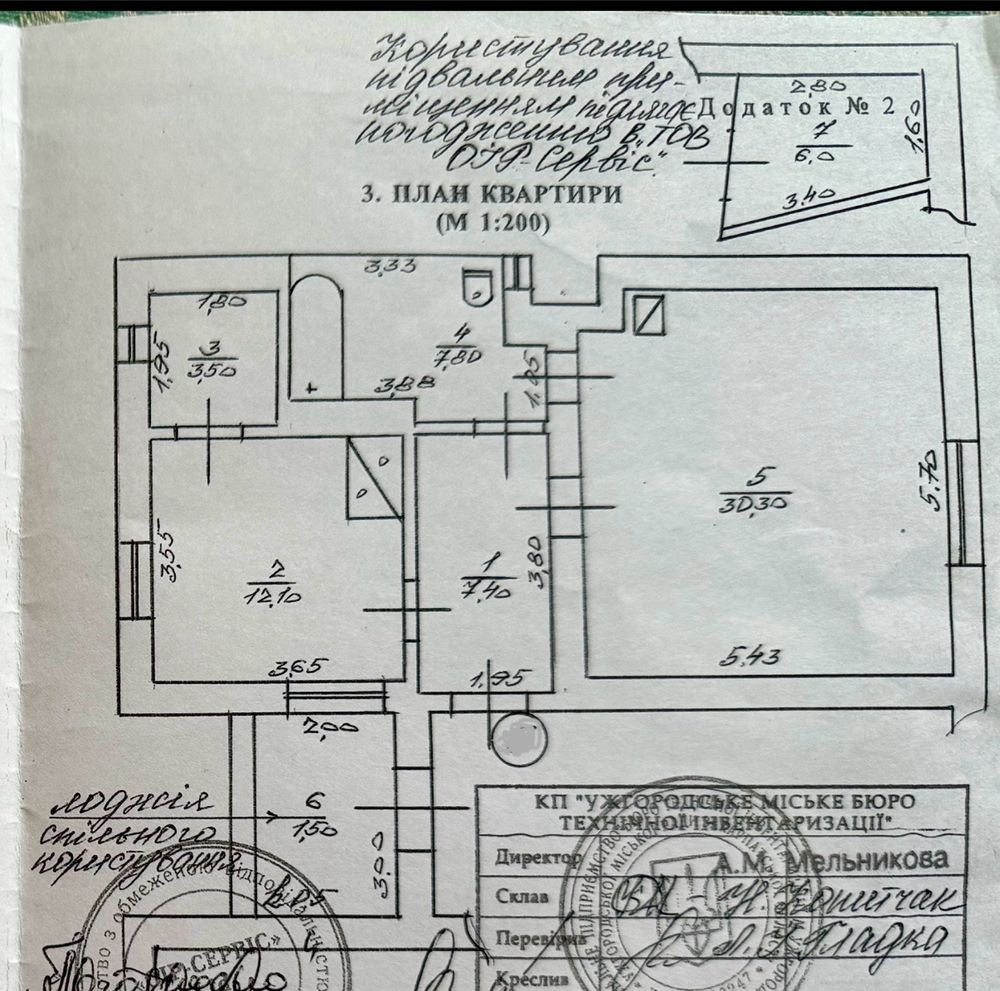 Користування
підвальним при-
міщенням підлягає
погодженню в „ТОВ
ОЖР-Сервіс"
Додаток № 2
2,80
7
6,0
1,60
3,40
3. ПЛАН КВАРТИРИ
(М 1:200)
3,33
1,80
3
3,50
1,95
4
7,80
3,88
1,05
5
30,30
5,70
3,55
2
12,10
1
7,40
3,80
3,65
1,95
5,43
2,00
лоджія
спільного
користування
6
1,50
3,00
КП "УЖГОРОДСЬКЕ МІСЬКЕ БЮРО
ТЕХНІЧНОЇ ІНВЕНТАРИЗАЦІЇ"
Директор А.М. Мельникова
Склав
Перевірив Гладка
Креслив